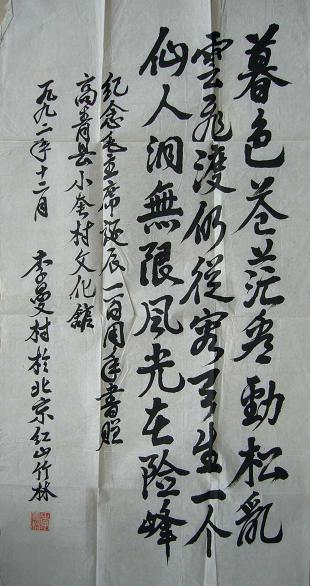 暮色蒼茫看勁松亂
雲飛渡仍從容天生一个
仙人洞無限风光在险峰
纪念毛主席诞辰一百周年書赠
高青县小套村文化舘
一九九二年十二月 李曼村於北京红山竹林